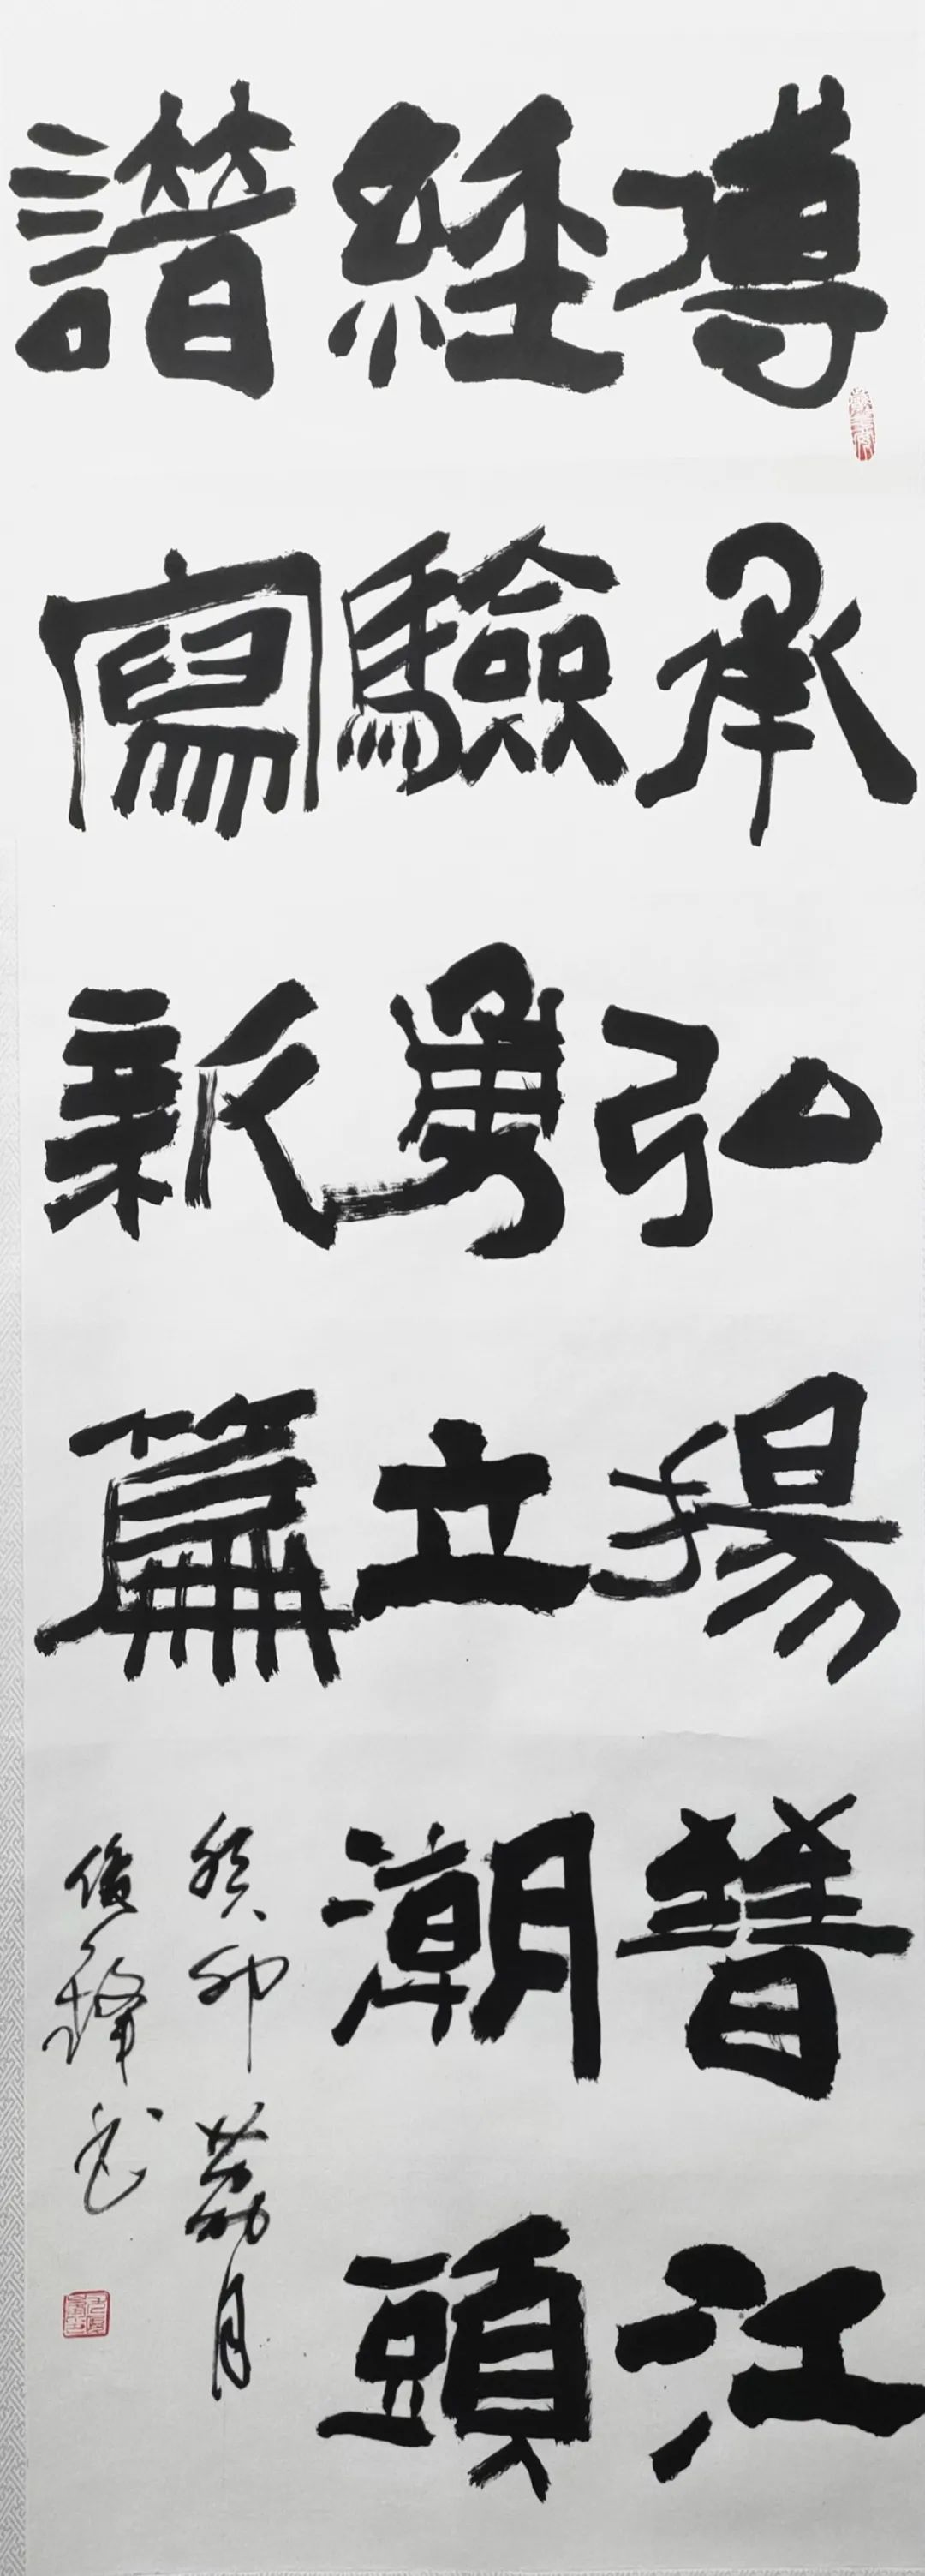 傳承弘揚晉江
經驗勇立潮頭
譜寫新篇
癸卯荔月
俊鋒书